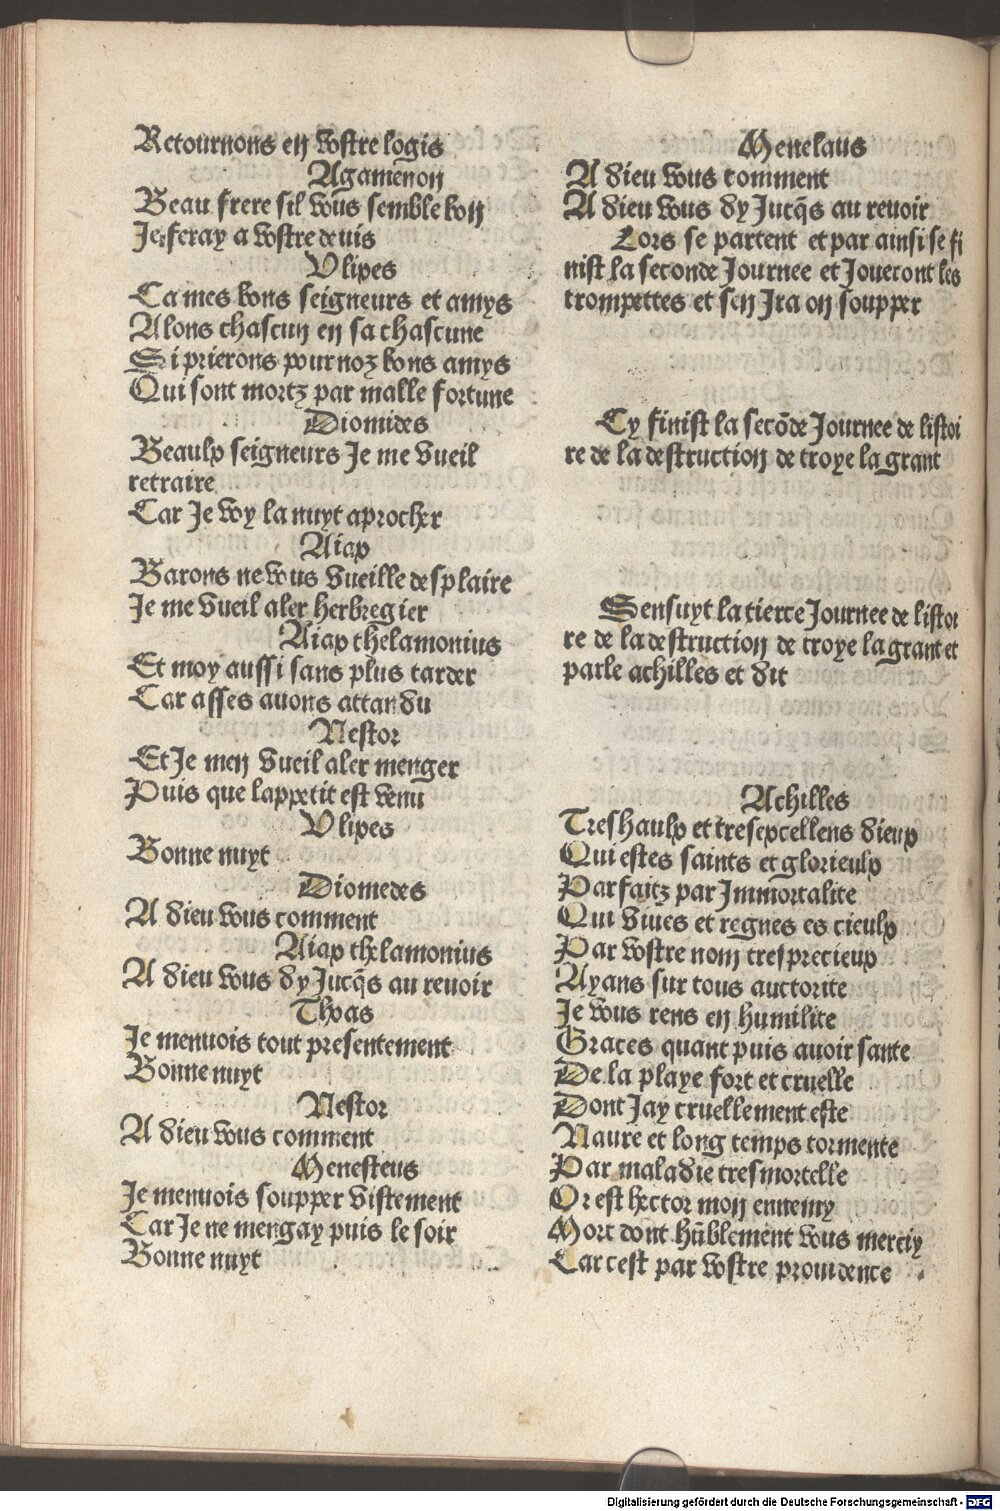 Retournons en vostre logis
Agamēnon
Beau frere sil vous semble bon
Je feray a vostre deuis
Vlixes
Ca mes bons seigneurs et amys
Alons chascun en sa chascune
Si prierons pour noz bons amys
Qui sont mortz par malle fortune
Diomides
Beaulx seigneurs Je me vueil
retraire
Car Je voy la nuyt aprocher
Aiax
Barons ne vous vueille desplaire
Je me vueil aler herbregier
Aiax thelamonius
Et moy aussi sans plus tarder
Car asses auons attandu
Nestor
Et Je men vueil aler menger
Puis que lappetit est venu
Vlixes
Bonne nuyt
Diomedes
A dieu vous comment
Aiax thelamonius
A dieu vous dy Jucq̄s au reuoir
Thoas
Je menuois tout presentement
Bonne nuyt
Nestor
A dieu vous comment
Menesteus
Je menuois soupper vistement
Car Je ne mengay puis le soir
Bonne nuyt
Menelaus
A dieu vous comment
A dieu vous dy Jucq̄s au reuoir
Lors se partent et par ainsi se fi
nist la seconde Journee et Joueront les
trompettes et sen Jra on soupper
Cy finist la secōde Journee de listoi
re de la destruction de troye la grant
Sensuyt la tierce Journee de listoi
re de la destruction de troye la grant et
parle achilles et dit
Achilles
Treshaulx et tresexcellens dieux
Qui estes saints et glorieulx
Parfaitz par Jmmortalite
Qui viues et regnes es cieulx
Par vostre nom tresprecieux
Ayans sur tous auctorite
Je vous rens en humilite
Graces quant puis auoir sante
De la playe fort et cruelle
Dont Jay cruellement este
Naure et long temps tormente
Par maladie tresmortelle
Or est hector mon ennemy
Mort dont hūblement vous merciy
Car cest par vostre prouidence
Digitalisierung gefördert durch die Deutsche Forschungsgemeinschaft - DFG